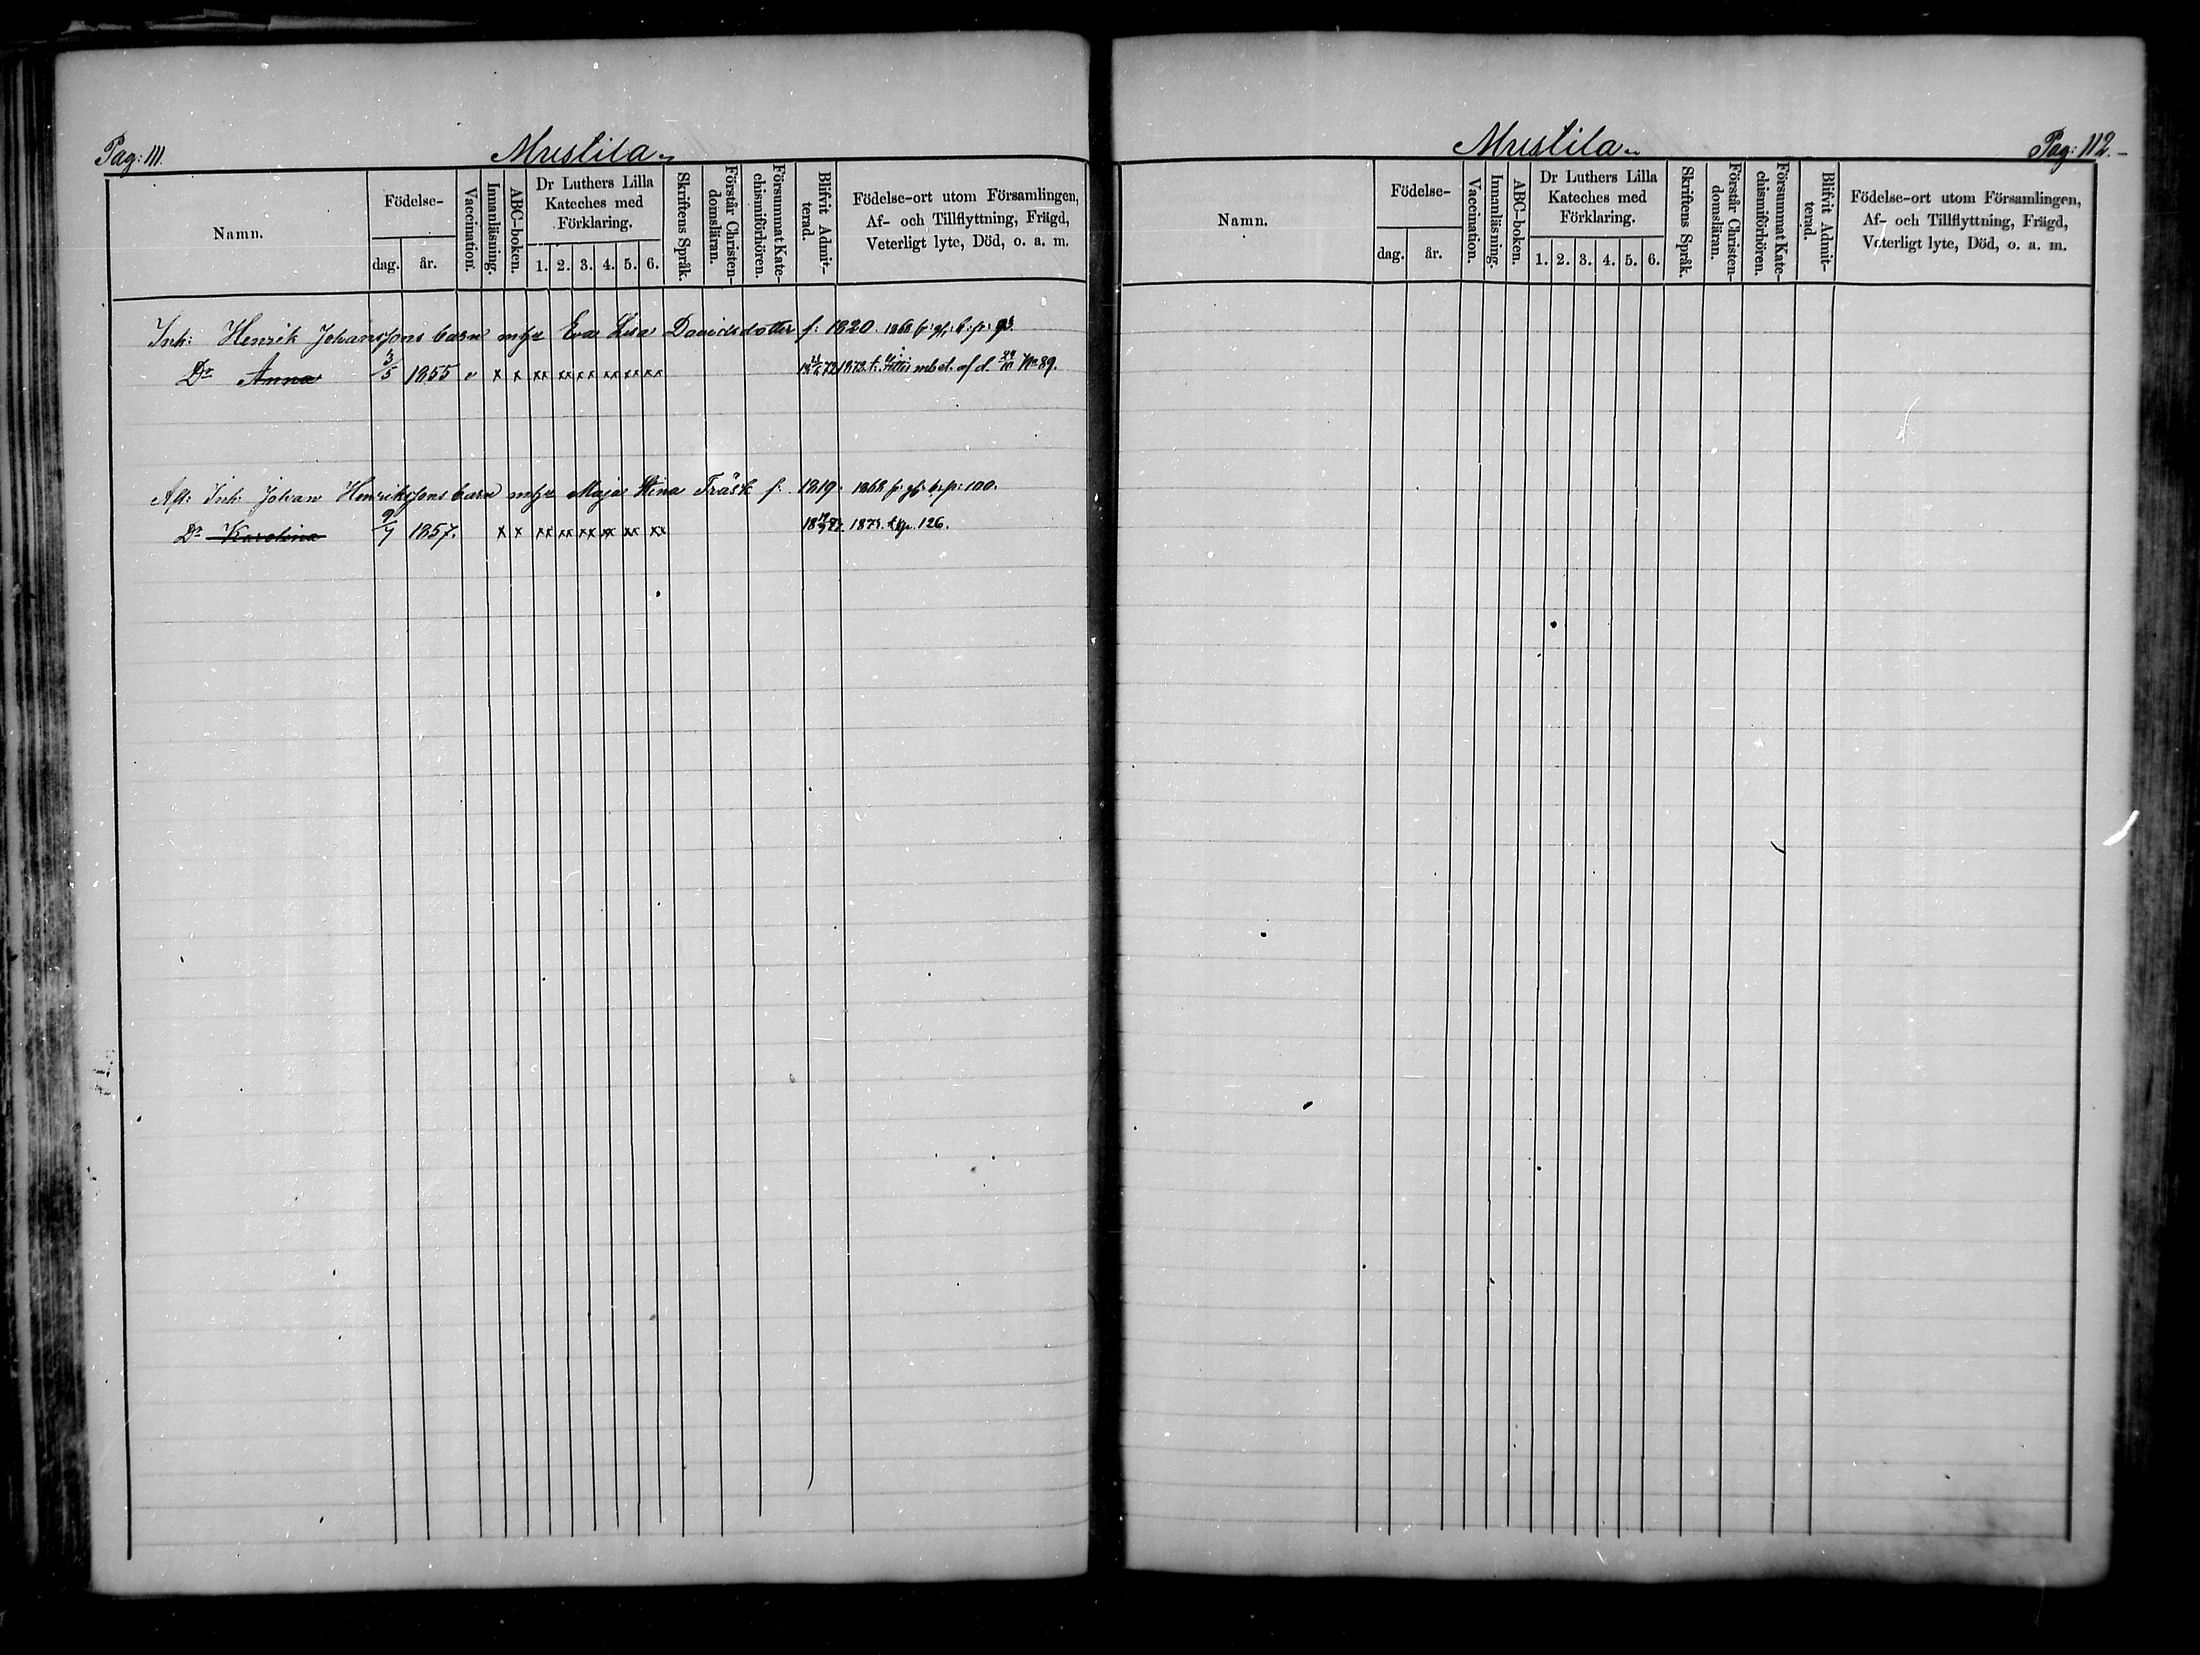 Pag: 111.
Mustila
Namn.
Födelse-
dag.
år.
Vaccination.
Innanläsning.
ABC-boken.
Dr Luthers Lilla
Kateches med
Förklaring.
1. 2. 3. 4. 5. 6.
Skriftens Språk.
Förstår Christen-
domsläran.
Försummat Kate-
chismiförhören.
Blifvit Admit-
terad.
Födelse-ort utom Församlingen,
Af- och Tillflyttning, Frägd,
Veterligt lyte, Död, o. a. m.
Inh: Henrik Johanssons barn Eva Lisa Davidsdotter f: 1820. 1868 fr: 
Dr Anna 3/5 1855 v x x xx xx xx xx xx xx 1872. t. mbet. af d. No 89.
Inh: Johan Henrikssons barn Maja Stina Träsk f: 1819. 1868 fr: 100.
Dr Karolina 9/7 1857. x x xx xx xx xx xx xx 126.
Mustila
Pag: 112.
Namn.
Födelse-
dag.
år.
Vaccination.
Innanläsning.
ABC-boken.
Dr Luthers Lilla
Kateches med
Förklaring.
1. 2. 3. 4. 5. 6.
Skriftens Språk.
Förstår Christen-
domsläran.
Försummat Kate-
chismiförhören.
Blifvit Admit-
terad.
Födelse-ort utom Församlingen,
Af- och Tillflyttning, Frägd,
Veterligt lyte, Död, o. a. m.